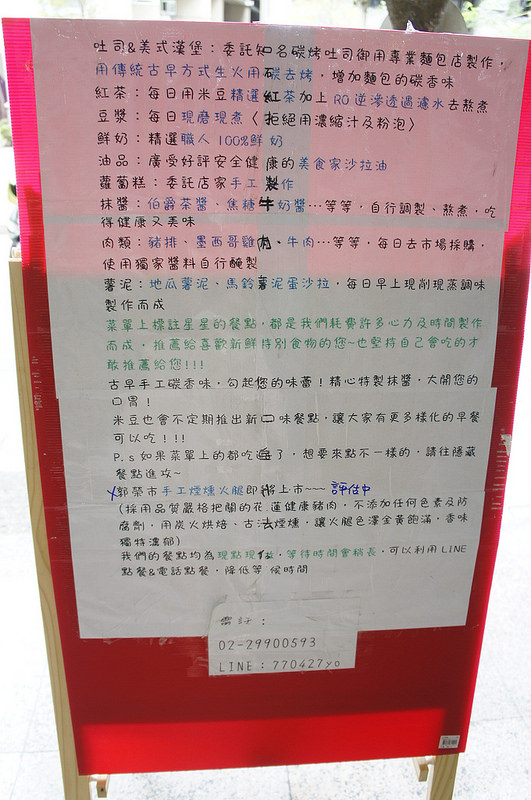 吐司&美式漢堡：委託知名碳烤吐司御用專業麵包店製作，
用傳統古早方式生火用碳去烤，增加麵包的碳香味
紅茶：每日用米豆精選紅茶加上RO逆滲透過濾水去熬煮
豆漿：每日現磨現煮〈拒絕用濃縮汁及粉泡〉
鮮奶：精選職人100%鮮奶
油品：廣受好評安全健康的美食家沙拉油
蘿蔔糕：委託店家手工製作
抹醬：伯爵茶醬、焦糖牛奶醬…等等，自行調製、熬煮，吃
得健康又美味
肉類：豬排、墨西哥雞肉、牛肉…等等，每日去市場採購，
使用獨家醬料自行醃製
薯泥：地瓜薯泥、馬鈴薯泥蛋沙拉，每日早上現削現蒸調味
製作而成
菜單上標註星星的餐點，都是我們耗費許多心力及時間製作
而成，推薦給喜歡新鮮特別食物的您~也堅持自己會吃的才
敢推薦給您!!!
古早手工碳香味，勾起您的味蕾！精心特製抹醬，大開您的
口胃！
米豆也會不定期推出新口味餐點，讓大家有更多樣化的早餐
可以吃！!!
P.s如果菜單上的都吃過了，想要來點不一樣的，請往隱藏
餐點進攻~
X郭榮市手工煙燻火腿即將上市~~~ 評估中
(採用品質嚴格把關的花蓮健康豬肉，不添加任何色素及防
腐劑，用炭火烘焙、古法煙燻，讓火腿色澤金黃飽滿，香味
獨特濃郁)
我們的餐點均為現點現做，等待時間會稍長，可以利用LINE
點餐&電話點餐，降低等候時間
電話：
02-29900593
LINE：770427yo